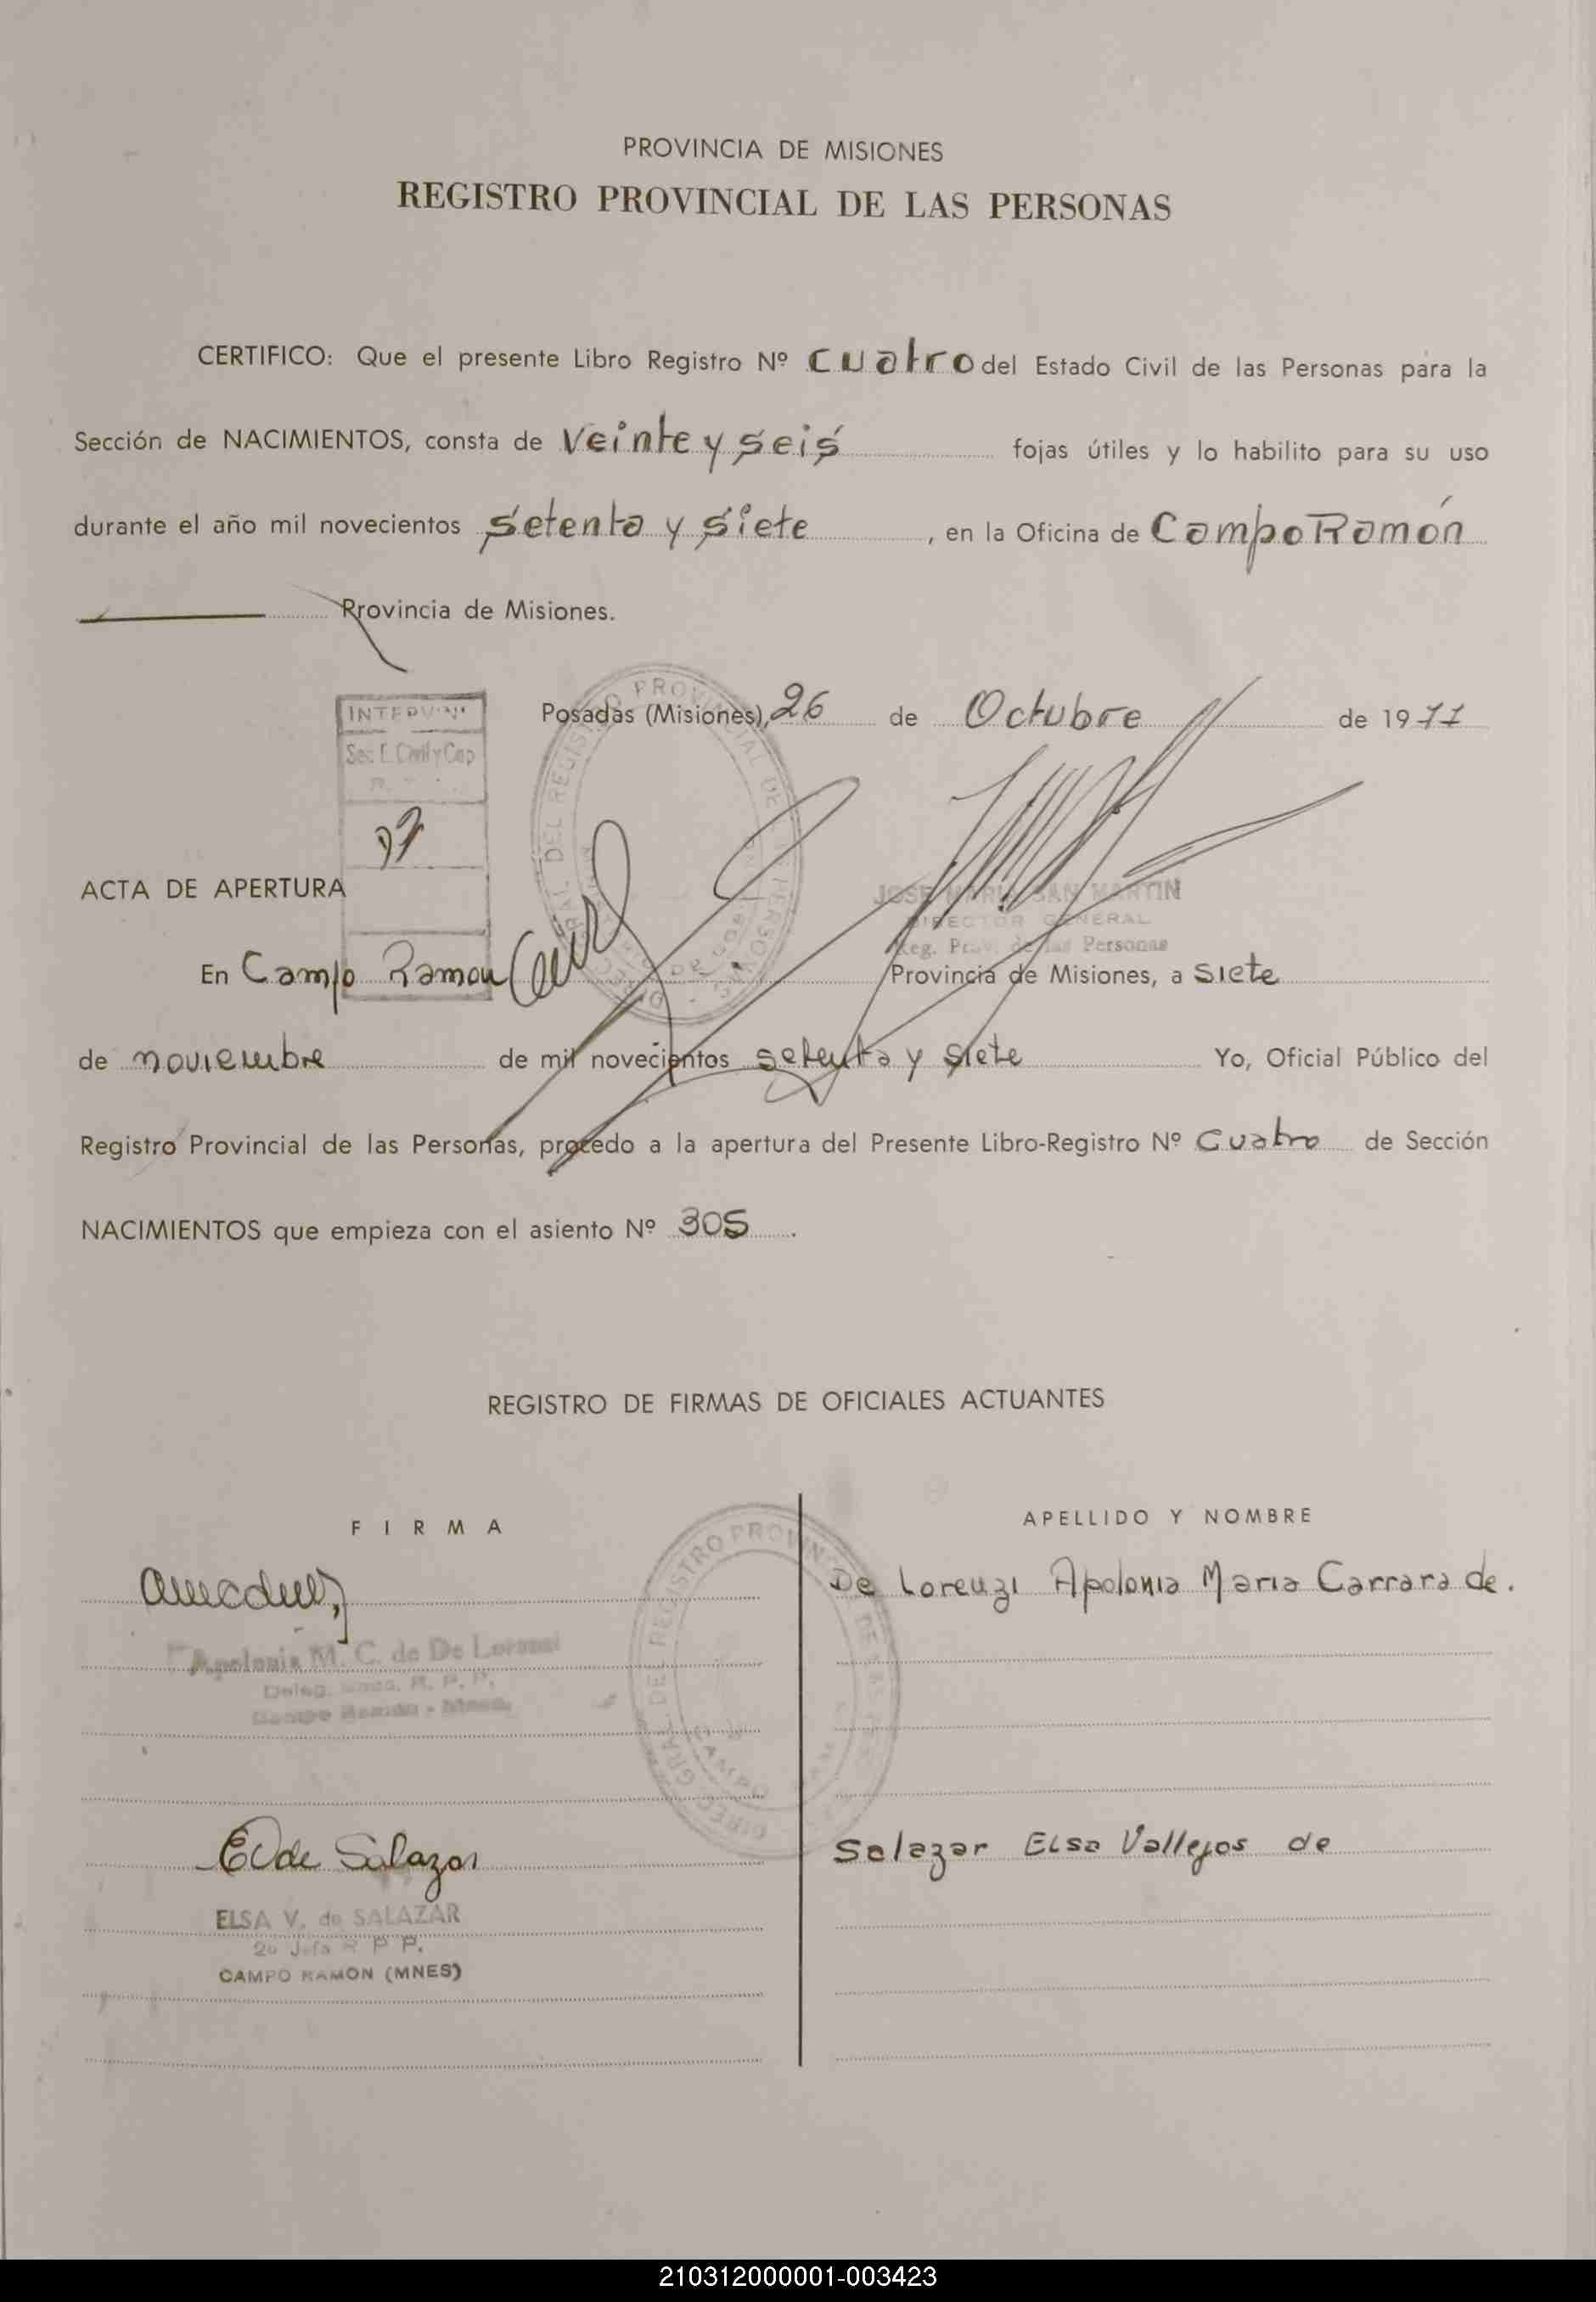 PROVINCIA DE MISIONES
REGISTRO PROVINCIAL DE LAS PERSONAS
CERTIFICO: Que el presente Libro Registro Nº cuatro del Estado Civil de las Personas para la
Sección de NACIMIENTOS, consta de veinte y seis fojas útiles y lo habilito para su uso
durante el año mil novecientos setenta y siete, en la Oficina de Campo Ramón
Provincia de Misiones.
Posadas (Misiones), 26 de Octubre de 1977
INTERVINO
Sec. E. Civil y Cap
ACTA DE APERTURA
JOSE MARIA SAN MARTIN
DIRECTOR GENERAL
Reg. Prov. de las Personas
En Campo Ramon Provincia de Misiones, a siete
de noviembre de mil novecientos setenta y siete Yo, Oficial Público del
Registro Provincial de las Personas, procedo a la apertura del Presente Libro-Registro Nº Cuatro de Sección
NACIMIENTOS que empieza con el asiento Nº 305.
REGISTRO DE FIRMAS DE OFICIALES ACTUANTES
FIRMA
APELLIDO Y NOMBRE
De Lorenzi Apolonia Maria Carrara de.
Apolonia M. C. de De Lorenzi
Campo Ramón - Mnes.
EVde Salazar
Salazar Elsa Vallejos de
ELSA V. de SALAZAR
CAMPO RAMON (MNES)
210312000001-003423